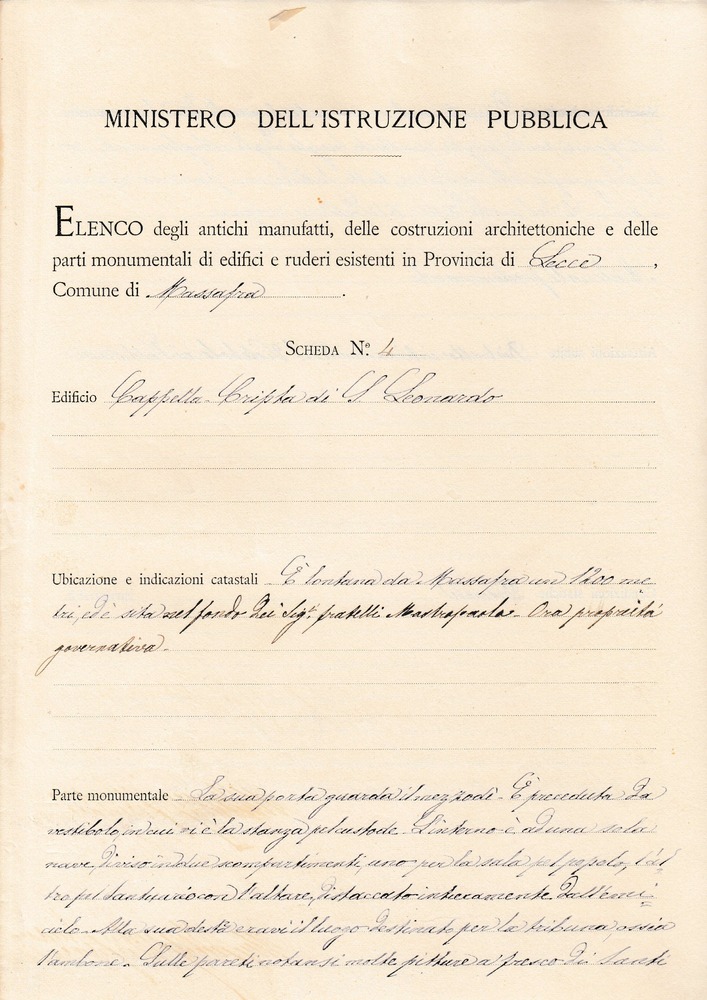 MINISTERO DELL'ISTRUZIONE PUBBLICA
ELENCO degli antichi manufatti, delle costruzioni architettoniche e delle
parti monumentali di edifici e ruderi esistenti in Provincia di Lecce,
Comune di Massafra.
SCHEDA N.º 4
Edificio Cappella-Cripta di S. Leonardo
Ubicazione e indicazioni catastali È lontana da Massafra un 1200 me
tri, ed è sita nel fondo dei Sig.i fratelli Mastropaolo - Ora proprietá
governativa -
Parte monumentale - La sua porta guarda il mezzodì - È preceduta da
vestibolo, in cui vi è la stanza pel custode - L'interno è ad una sola
nave, diviso in due scompartimenti, uno per la sala pel popolo, l'al
tro pel santuario con l'altare, distaccato interamente dall'emi
ciclo - Alla sua destra eravi il luogo destinato per la tribuna, ossia
l'ambone - Sulle pareti notansi molte pitture a fresco di Santi